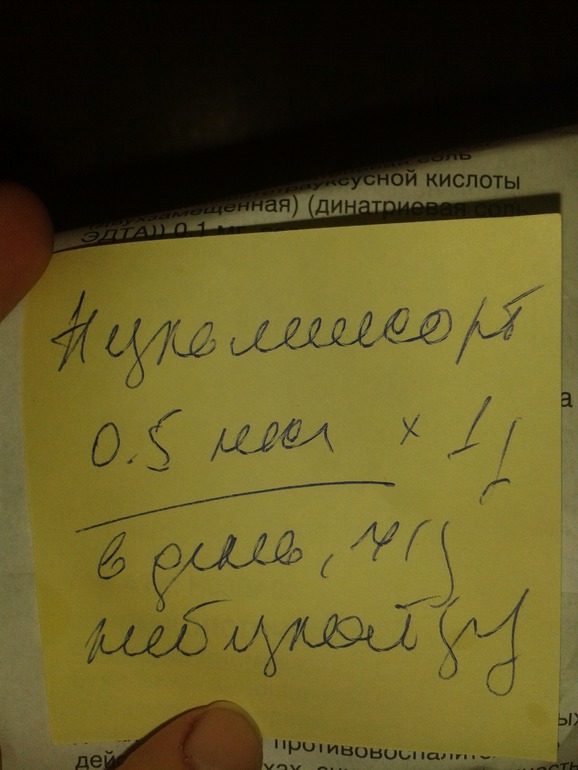 соль
уксусной кислоты
замещенная) (динатриевая соль
ЭДТА)) 0,1 мг
Пульмикорт
0.5 мкг x 1 р
в день, ч/з
небулайзер
противовоспалит